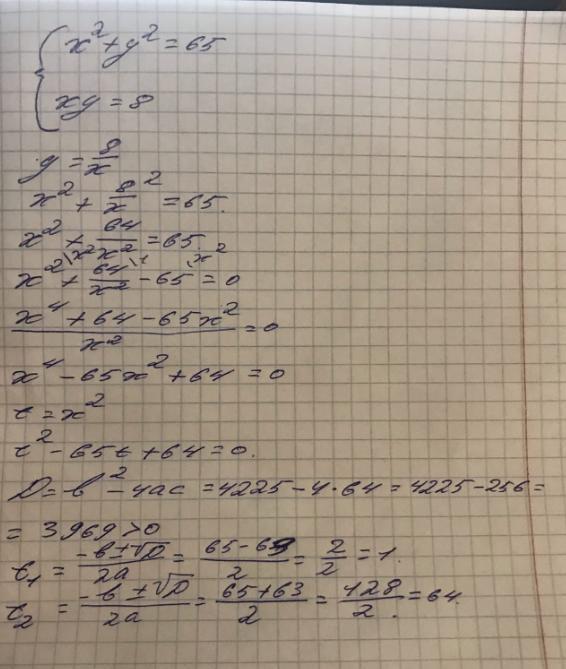 x² + y² = 65
xy = 8
y = 8/x
x² + 8/x ² = 65.
x² + 64/x² = 65.
x² \x² + 64/x² \1 - 65 \x² = 0
(x⁴ + 64 - 65x²)/x² = 0
x⁴ - 65x² + 64 = 0
t = x²
t² - 65t + 64 = 0.
D = b² - 4ac = 4225 - 4·64 = 4225 - 256 =
= 3969 > 0
t₁ = (-b ± √D)/2a = (65 - 63)/2 = 2/2 = 1.
t₂ = (-b ± √D)/2a = (65 + 63)/2 = 128/2 = 64.